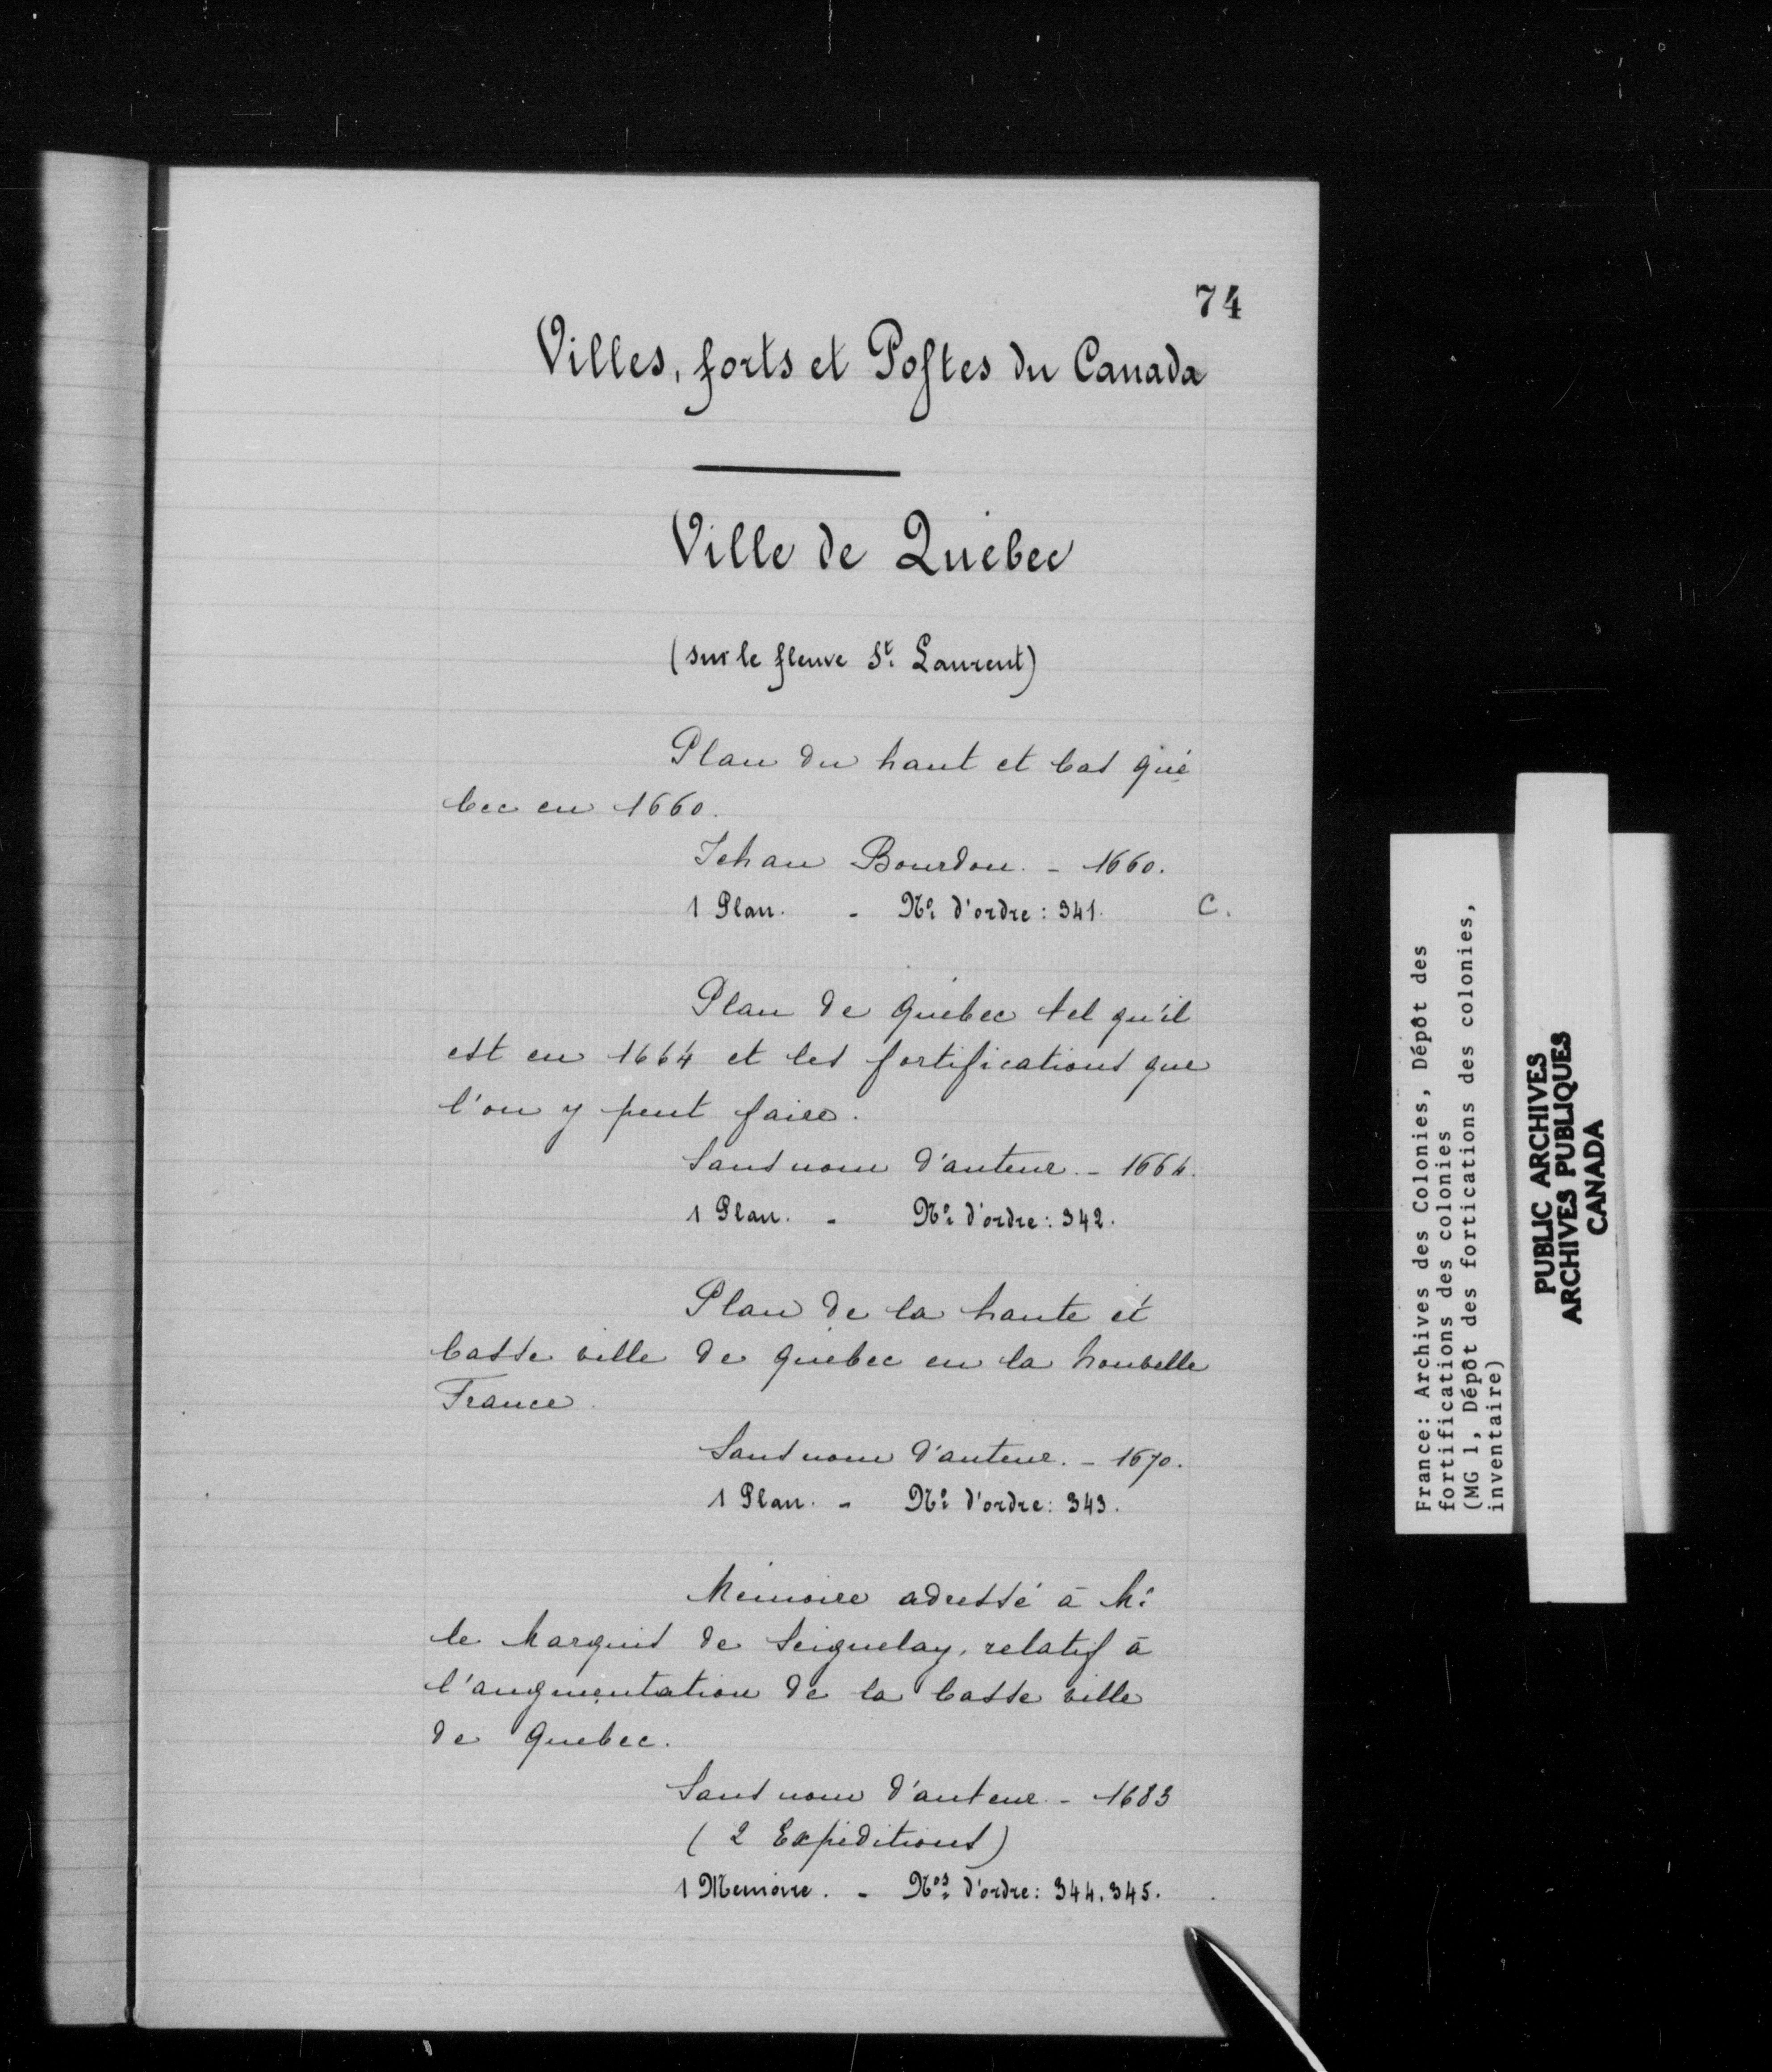 74
Villes, forts et Postes du Canada
Ville de Québec
(sur le fleuve St. Laurent)
Plan du haut et bas qué
bec en 1660.
Jehan Bourdon. - 1660.
1 Plan. - No. d'ordre : 341. C.
Plan de québec tel qu'il
est en 1664 et les fortifications que
l'on y peut faire.
Sans nom d'auteur. - 1664.
1 Plan. - No. d'ordre : 342.
Plan de la haute et
basse ville de québec en la nouvelle
France.
Sans nom d'auteur. - 1670.
1 Plan. - No. d'ordre : 343.
Mémoire adressé à Mr
le Marquis de Seignelay, relatif à
l'augmentation de la basse ville
de Quebec.
Sans nom d'auteur. - 1683
( 2 Expéditions)
1 Memoire. - Nos. d'ordre : 344. 345.
France: Archives des Colonies, Dépôt des
fortifications des colonies
(MG 1, Dépôt des fortications des colonies,
inventaire)
PUBLIC ARCHIVES
ARCHIVES PUBLIQUES
CANADA